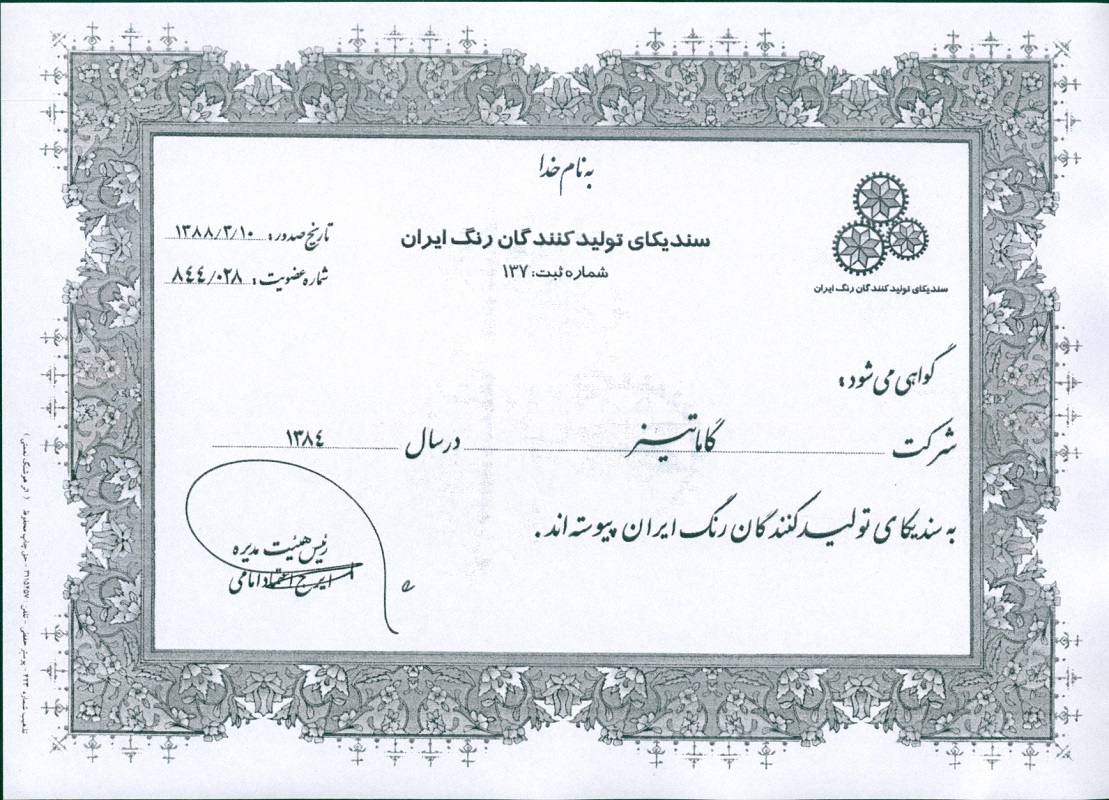 به نام خدا
سندیکای تولید کنندگان رنگ ایران
شماره ثبت: ۱۳۷
تاریخ صدور: ۱۳۸۸/۳/۱۰
شماره عضویت: ۸۴۴/۰۲۸
سندیکای تولید کنندگان رنگ ایران
گواهی می شود:
شرکت گاماتیـنر در سال ۱۳۸۴
به سندیکای تولید کنندگان رنگ ایران پیوسته اند.
رئیس هیئت مدیره
ایرج اعتماد امامی